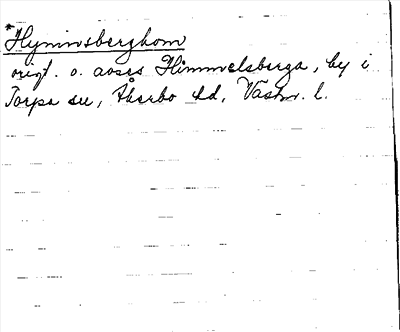 *Hymmsberghom
origt. o. avses Himmelsberga, by i
Torpa sn, Åkerbo hd, Västm. l.